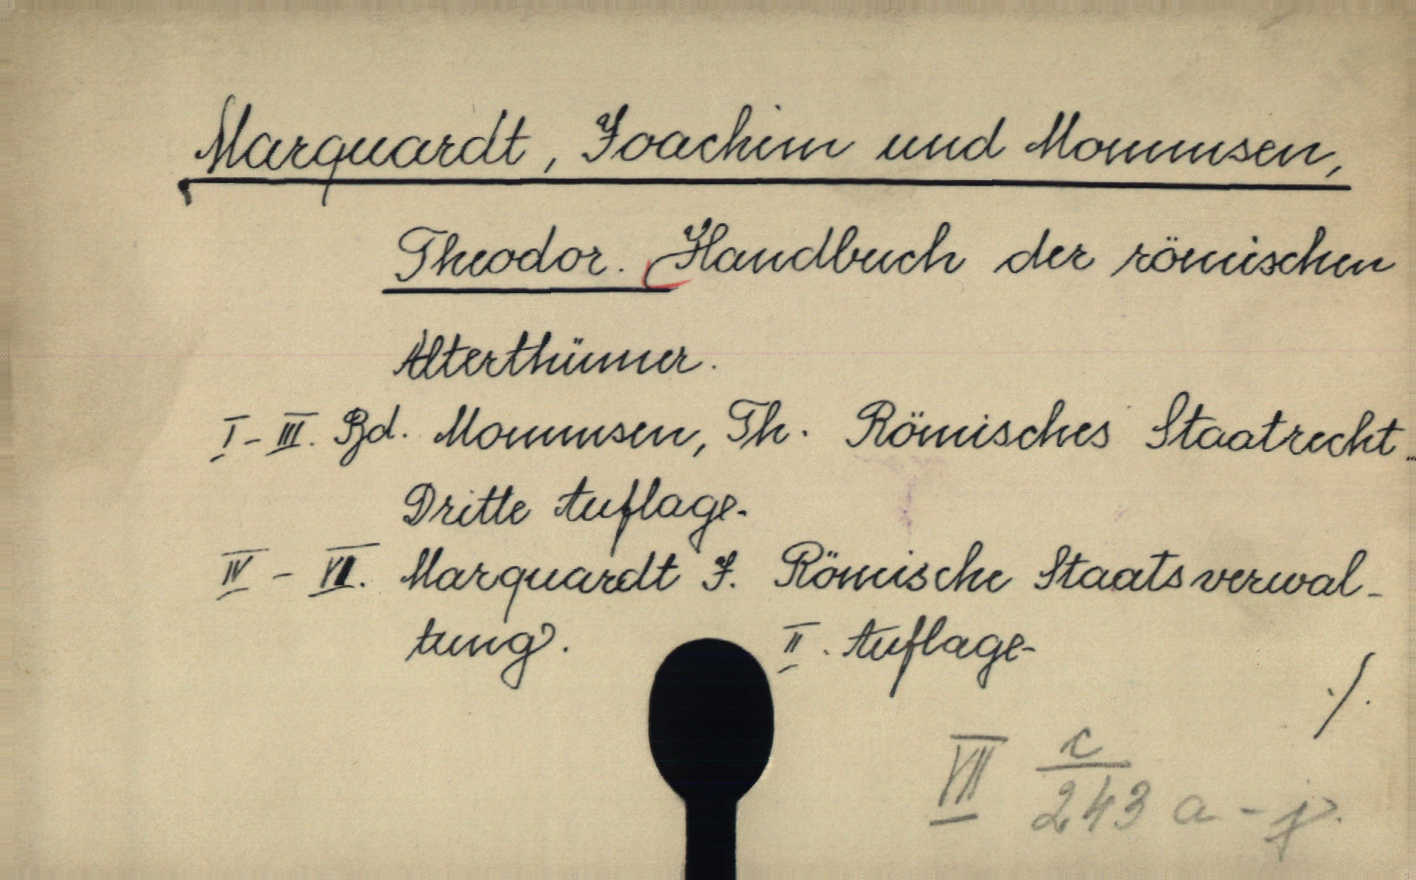 Marquardt, Joachim und Mommsen,
Theodor. Handbuch der römischen
Alterthümer.
I-III. Bd. Mommsen, Th. Römisches Staatrecht..
Dritte Auflage.
IV - VI. Marquardt J. Römische Staatsverwal-
tung. II. Auflage.
./.
VII c/243 a - j.